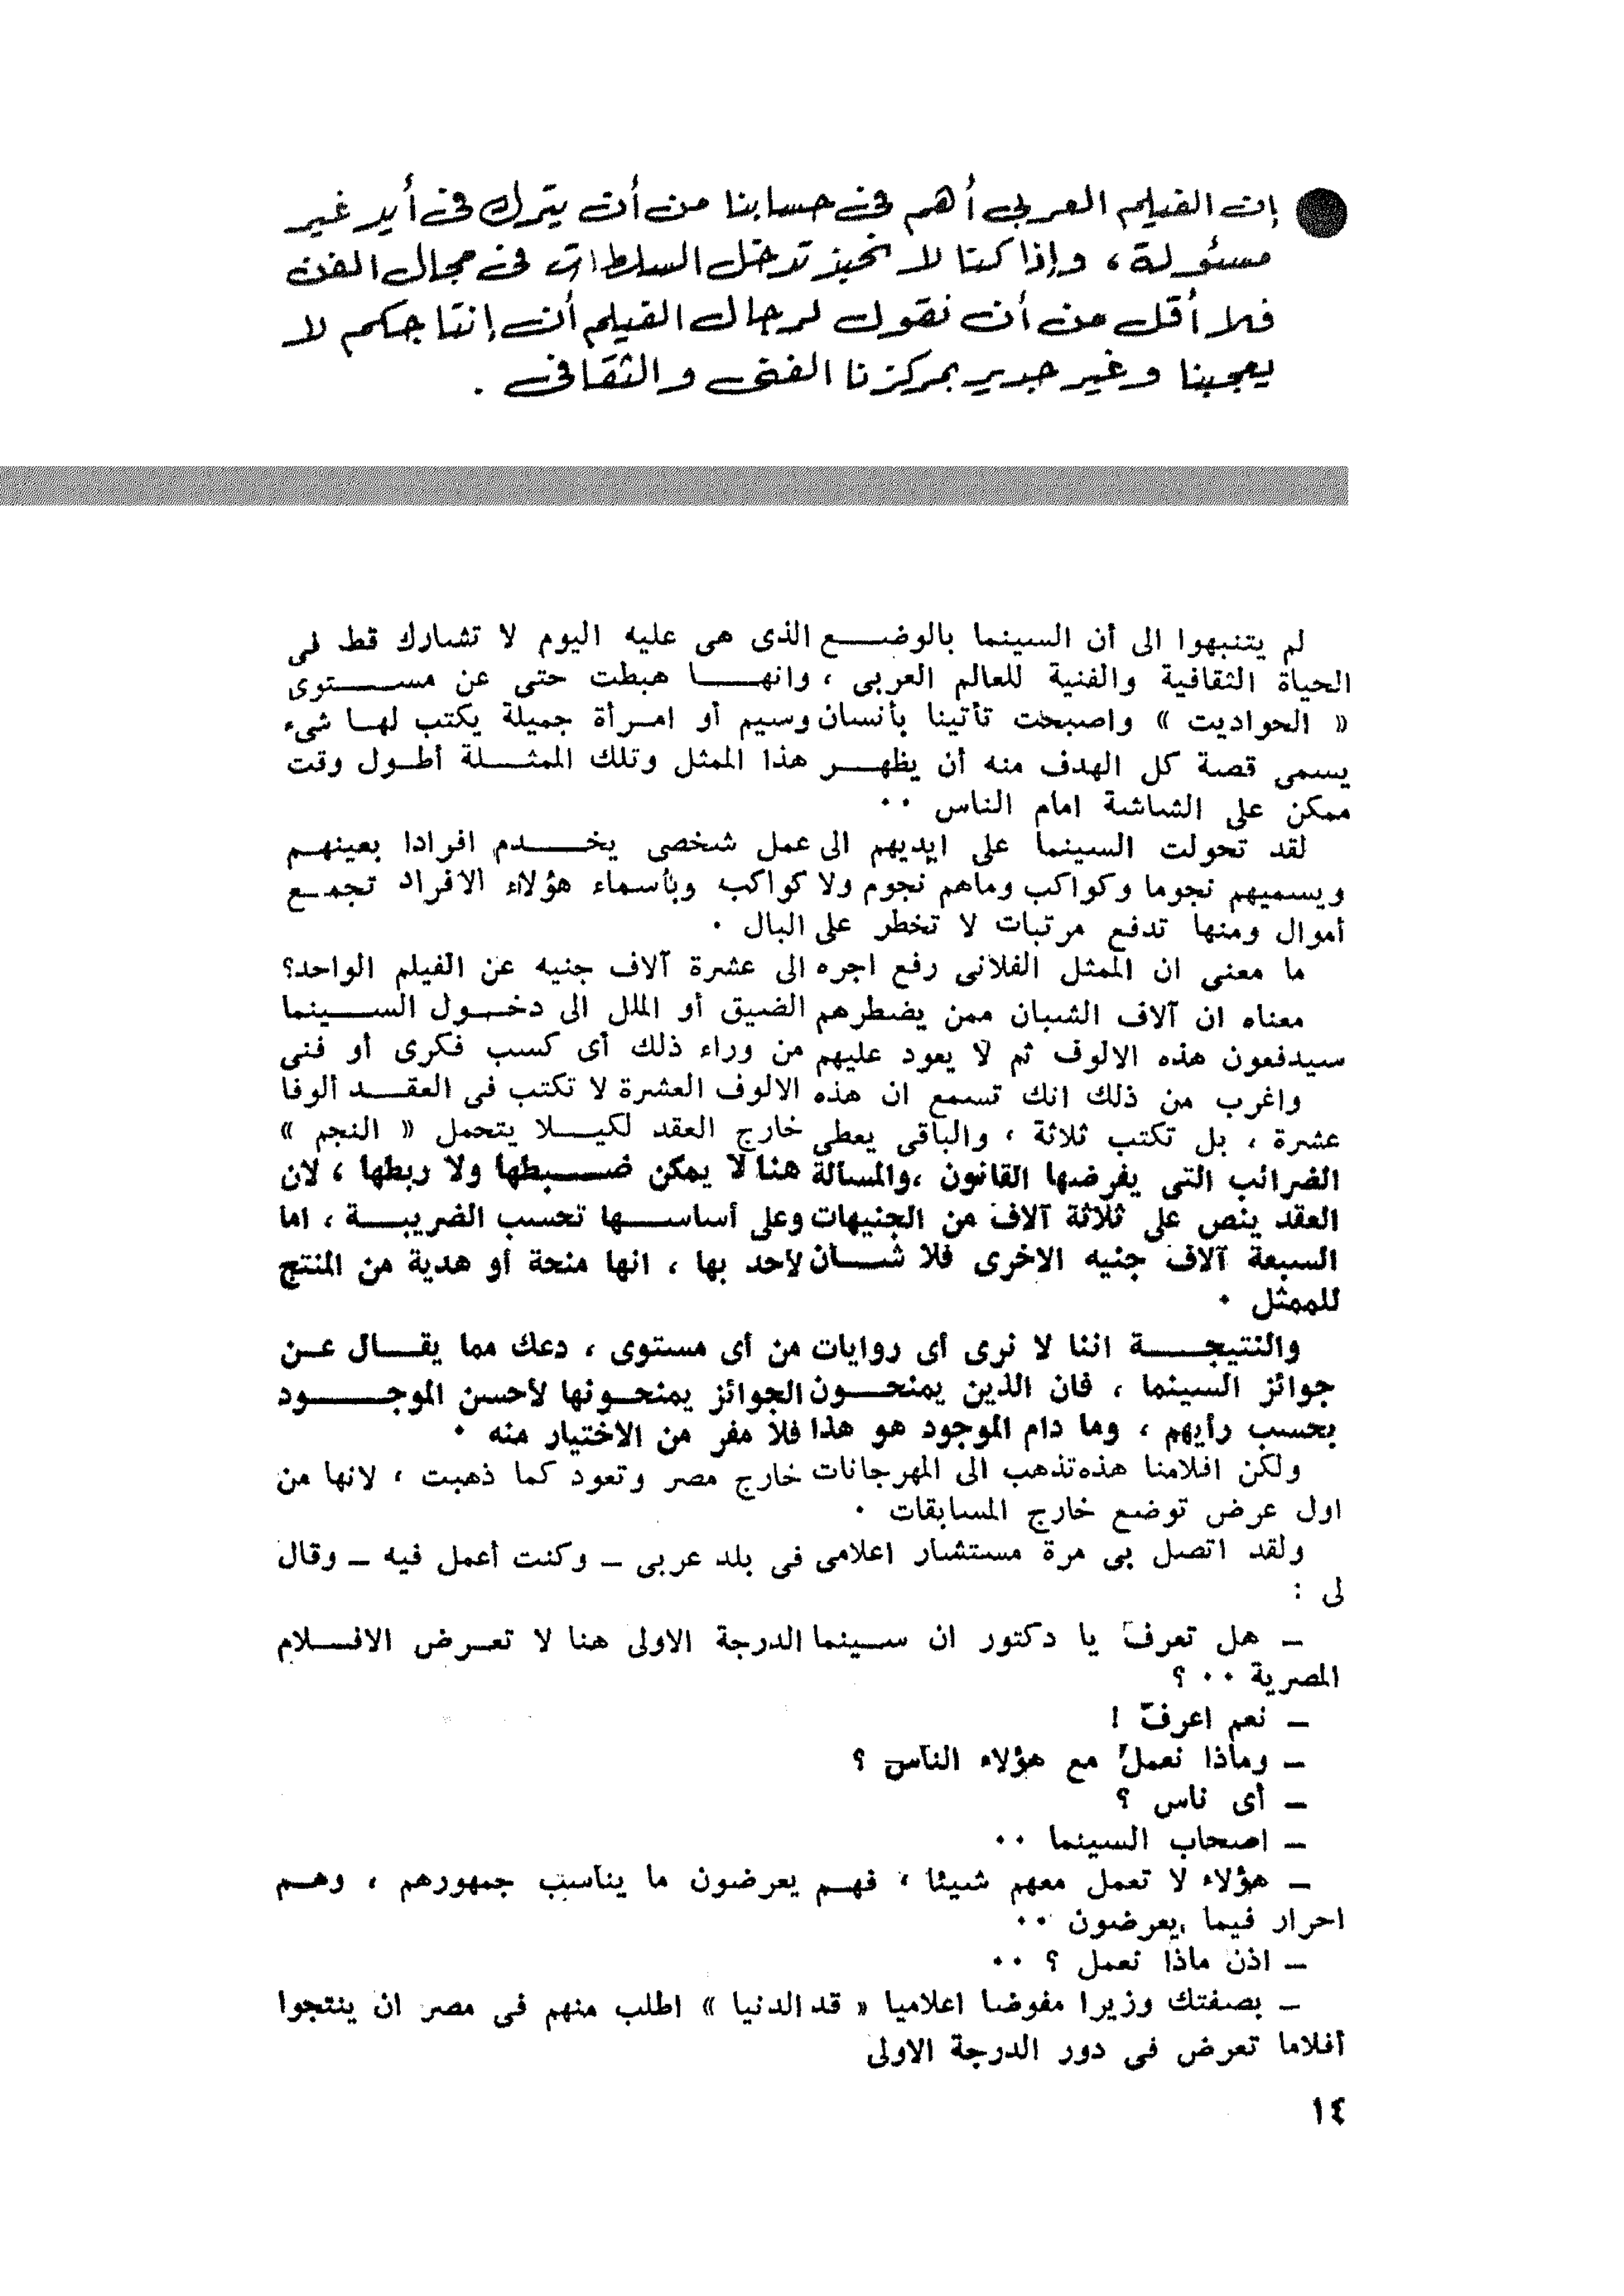 ● إن الفيلم العربى أهم فى حسابنا من أن يترك فى أيد غير
مسئولة ، وإذا كنا لا نحبذ تدخل السلطات فى مجال الفن
فلا أقل من أن نقول لرجال الفيلم أن إنتاجكم لا
يعجبنا وغير جدير بمركزنا الفنى والثقافى .
لم يتنبهوا الى أن السينما بالوضع الذى هى عليه اليوم لا تشارك قط فى
الحياة الثقافية والفنية للعالم العربى ، وانها هبطت حتى عن مستوى
« الحواديت » واصبحت تأتينا بأنسان وسيم أو امرأة جميلة يكتب لها شىء
يسمى قصة كل الهدف منه أن يظهر هذا الممثل وتلك الممثلة أطول وقت
ممكن على الشاشة امام الناس ٠٠
لقد تحولت السينما على ايديهم الى عمل شخصى يخدم افرادا بعينهم
ويسميهم نجوما وكواكب وماهم نجوم ولا كواكب وبأسماء هؤلاء الافراد تجمع
أموال ومنها تدفع مرتبات لا تخطر على البال ٠
ما معنى ان الممثل الفلانى رفع اجره الى عشرة آلاف جنيه عن الفيلم الواحد؟
معناه ان آلاف الشبان ممن يضطرهم الضيق أو الملل الى دخول السينما
سيدفعون هذه الالوف ثم لا يعود عليهم من وراء ذلك أى كسب فكرى أو فنى
واغرب من ذلك انك تسمع ان هذه الالوف العشرة لا تكتب فى العقد ألوفا
عشرة ، بل تكتب ثلاثة ، والباقى يعطى خارج العقد لكيلا يتحمل « النجم »
الضرائب التى يفرضها القانون ،والمسألة هنا لا يمكن ضبطها ولا ربطها ، لان
العقد ينص على ثلاثة آلاف من الجنيهات وعلى أساسها تحسب الضريبة ، اما
السبعة آلاف جنيه الاخرى فلا شان لاحد بها ، انها منحة أو هدية من المنتج
للممثل ٠
والنتيجة اننا لا نرى أى روايات من أى مستوى ، دعك مما يقال عن
جوائز السينما ، فان الذين يمنحون الجوائز يمنحونها لأحسن الموجود
بحسب رأيهم ، وما دام الموجود هو هذا فلا مفر من الاختيار منه ٠
ولكن افلامنا هذه تذهب الى المهرجانات خارج مصر وتعود كما ذهبت ، لانها من
اول عرض توضع خارج المسابقات ٠
ولقد اتصل بى مرة مستشار اعلامى فى بلد عربى ــ وكنت أعمل فيه ــ وقال
لى :
ــ هل تعرف يا دكتور ان سينما الدرجة الاولى هنا لا تعرض الافلام
المصرية ٠٠ ؟
ــ نعم اعرف !
ــ وماذا نعمل مع هؤلاء الناس ؟
ــ أى ناس ؟
ــ اصحاب السينما ٠٠
ــ هؤلاء لا تعمل معهم شيئا ، فهم يعرضون ما يناسب جمهورهم ، وهم
احرار فيما يعرضون ٠٠
ــ اذن ماذا نعمل ؟ ٠٠
ــ بصفتك وزيرا مفوضا اعلاميا « قد الدنيا » اطلب منهم فى مصر ان ينتجوا
أفلاما تعرض فى دور الدرجة الاولى
١٤